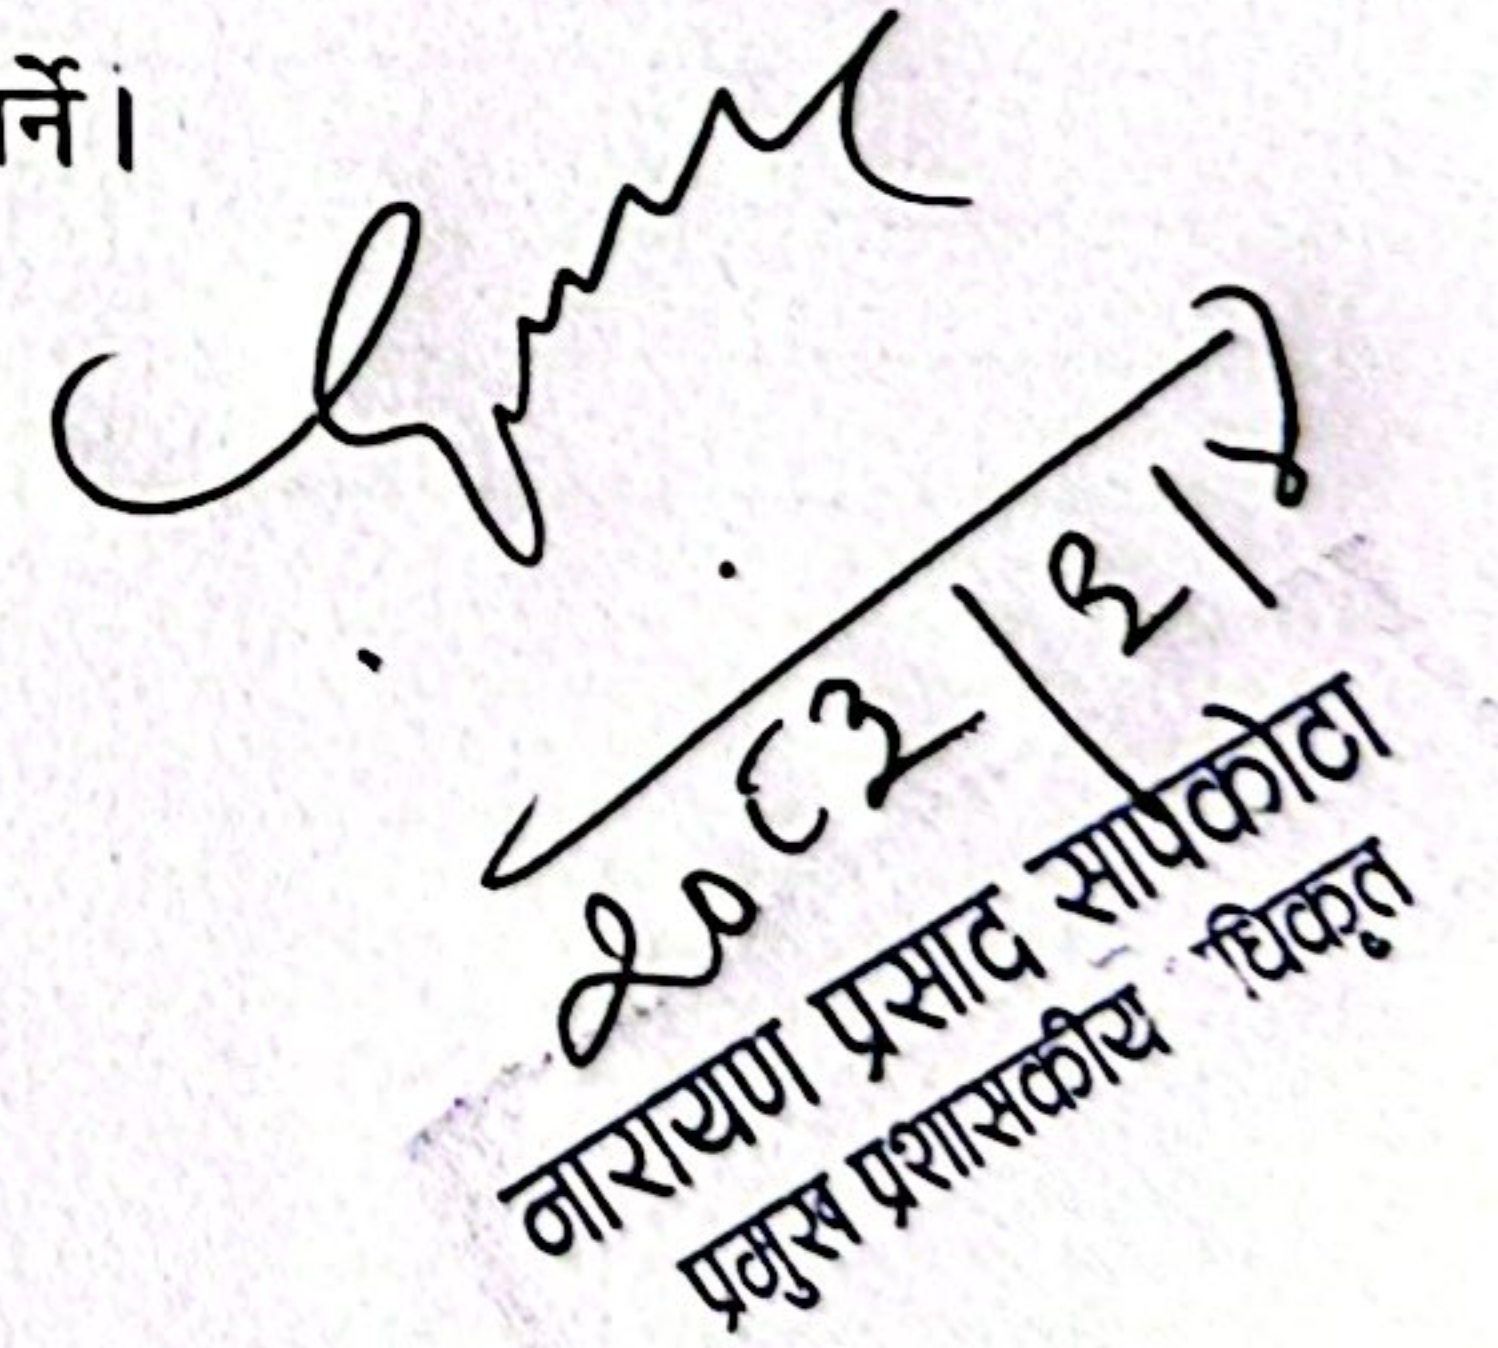 र्ने।
२०८३
नारायण प्रसाद सापकोटा
प्रमुख प्रशासकीय धिकृत